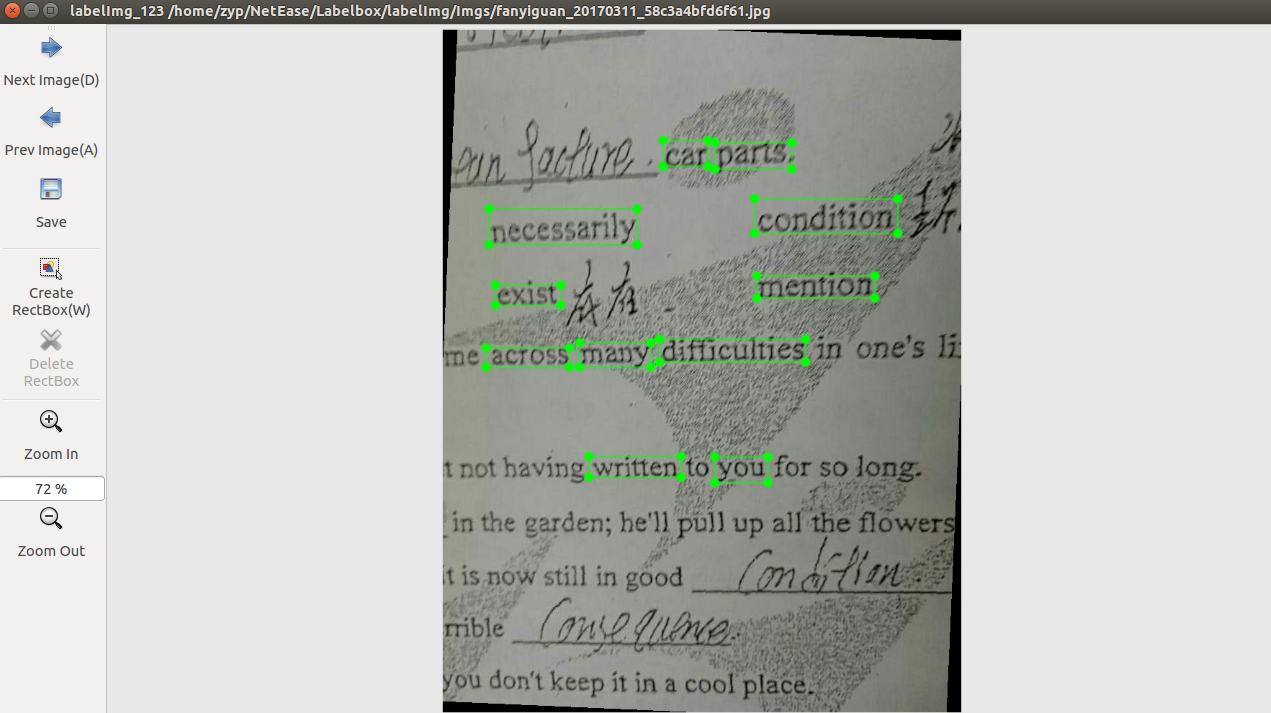 labelImg_123 /home/zyp/NetEase/Labelbox/labelImg/Imgs/fanyiguan_20170311_58c3a4bfd6f61.jpg
Next Image(D)
Prev Image(A)
Save
Create
RectBox(W)
Delete
RectBox
Zoom In
72 %
Zoom Out
facture. car parts.
necessarily condition
exist mention
me across many difficulties in one's li
t not having written to you for so long.
in the garden; he'll pull up all the flowers
it is now still in good Condition.
rrible Consequence.
you don't keep it in a cool place.